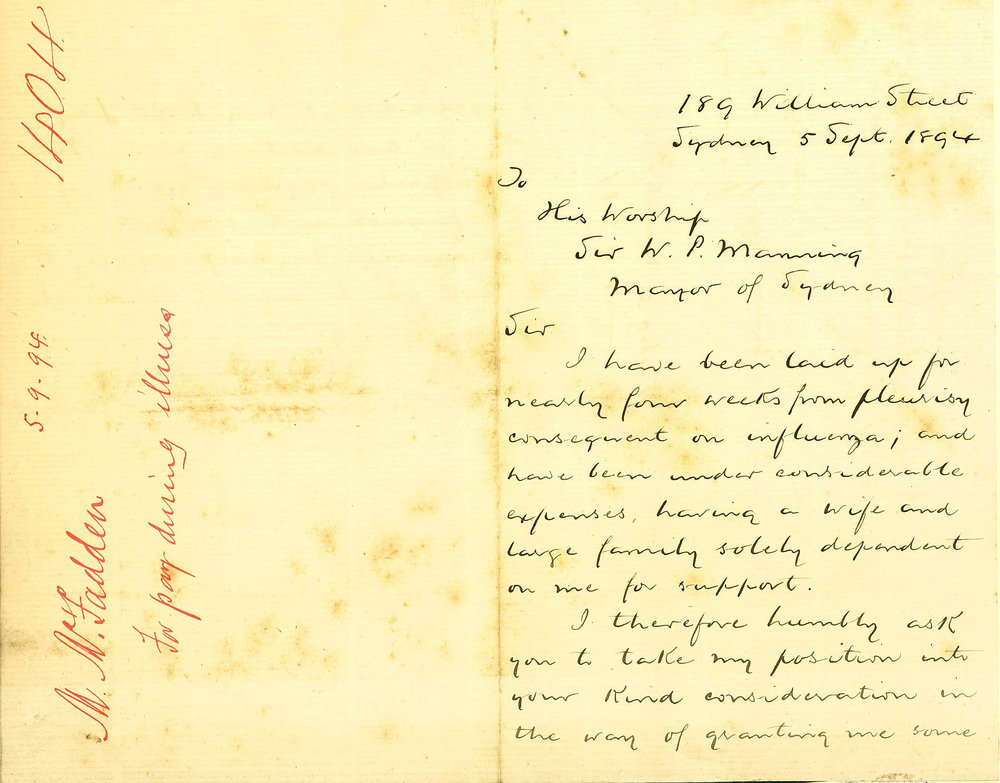 1404.
5-9-94.
M. McFadden
For pay during illness
189 William Street
Sydney 5 Sept. 1894
To
His Worship
Sir W. P. Manning
Mayor of Sydney
Sir
I have been laid up for
nearly four weeks from pleurisy
consequent on influenza; and
have been under considerable
expenses, having a wife and
large family solely dependent
on me for support.
I therefore humbly ask
you to take my position into
your kind consideration in
the way of granting me some